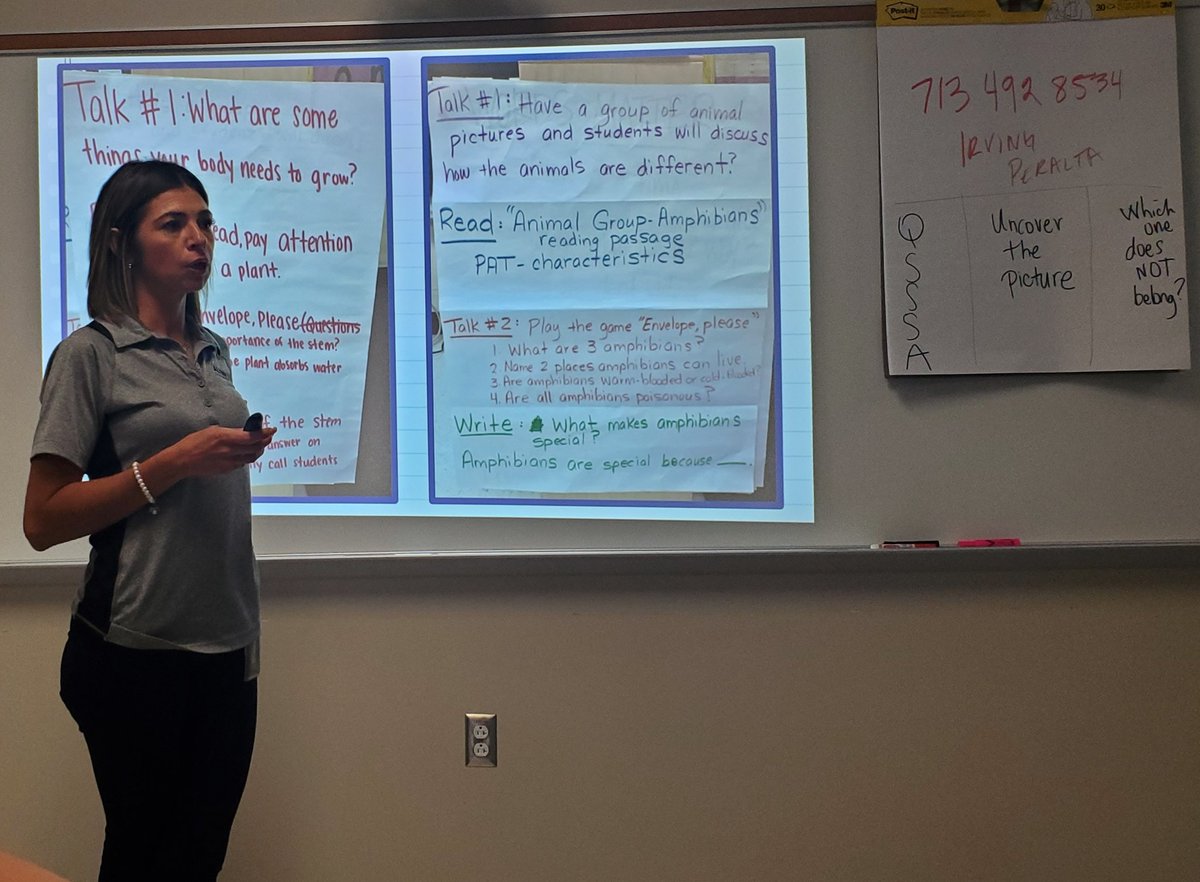 Talk #1: What are some
things your body needs to grow?
ead, pay attention
a plant.
nvelope, Please (Questions
portance of the stem?
e plant absorbs water
f the stem
answer on
ly call students
Talk #1: Have a group of animal
pictures and students will discuss
how the animals are different?
Read: "Animal Group-Amphibians"
reading passage
PAT- characteristics
Talk #2: Play the game "Envelope, please"
1. What are 3 amphibians?
2. Name 2 places amphibians can live.
3. Are amphibians warm-blooded or cold-blooded?
4. Are all amphibians poisonous?
Write: What makes amphibians
special?
Amphibians are special because ___.
Post-it
20
3M
713 492 8534
IRVING
PERALTA
Q
S
S
S
A
Uncover
the
picture
Which
one
does
NOT
belong?